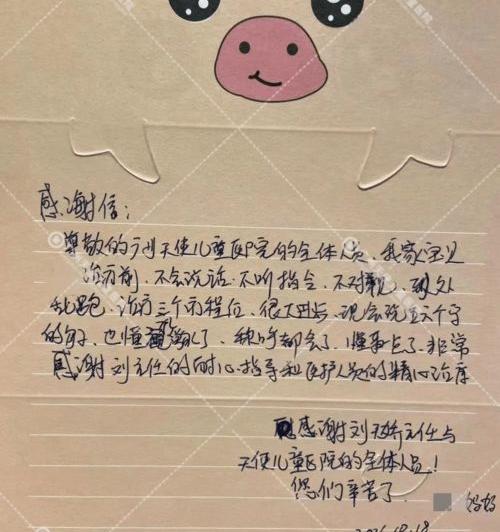 感谢信：
尊敬的天使儿童医院的全体人员，我家宝贝
治疗前，不会说话，不听指令，不对视，到处
乱跑，治疗三个疗程后，很大进步，现会说五六个字
的句子，也懂了，称呼都会了，懂事点了，非常
感谢刘主任的耐心指导和医护人员的精心治疗
感谢刘主任与
天使儿童医院的全体人员！
你们辛苦了
妈妈